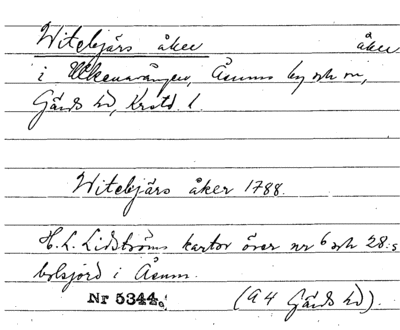 Witebjärs åker åker
i Ålkenavången, Åsums by och sn,
Gärds hd, Krstd l.
Witebjärs åker 1788.
H. L. Lidströms kartor över nr 6 och 28:s
bolsjord i Åsum.
Nr 5344. (A4 Gärds hd).